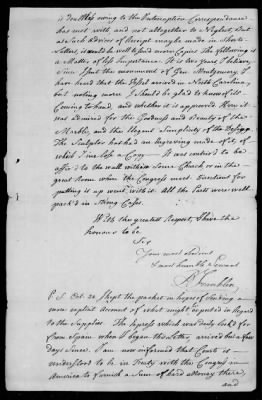 is doubtless owing to the Interruption Correspondence
has met with, and not altogether to Neglect. But
as such Advices of Receipt may be made in short
Letters, it would be well to send more Copies. The following is
a Matter of less Importance. It is two Years I believe,
since I sent the Monument of Gen. Montgomery. I
have heard that the Vessel arrived in North Carolina,
but nothing more. I should be glad to know of its
coming to hand, and whether it is approved. Here it
was admired for the Goodness and Beauty of the
Marble, and the elegant Simplicity of the Design.
The Sculptor has had an Engraving made of it, of
which I inclose a Copy. It was contrived to be
affix'd to the Wall within some Church, or in the
great Room where the Congress meet. Directions for
putting it up went with it. All the Parts were well
pack'd in strong Cases.
With the greatest Respect, I have the
honour to be
Sir
Your most obedient
& most humble Servant
B Franklin
P.S. Oct. 20. I kept the Packet in hopes of sending a
more explicit Account of what might be expected in Regard
to the Supplies. The Express which was daily look'd for
from Spain when I began this Letter, arrived but a few
days since. I am now informed that Court is
understood to be in Treaty with the Congress in
America to furnish a Sum of hard Money there,
and